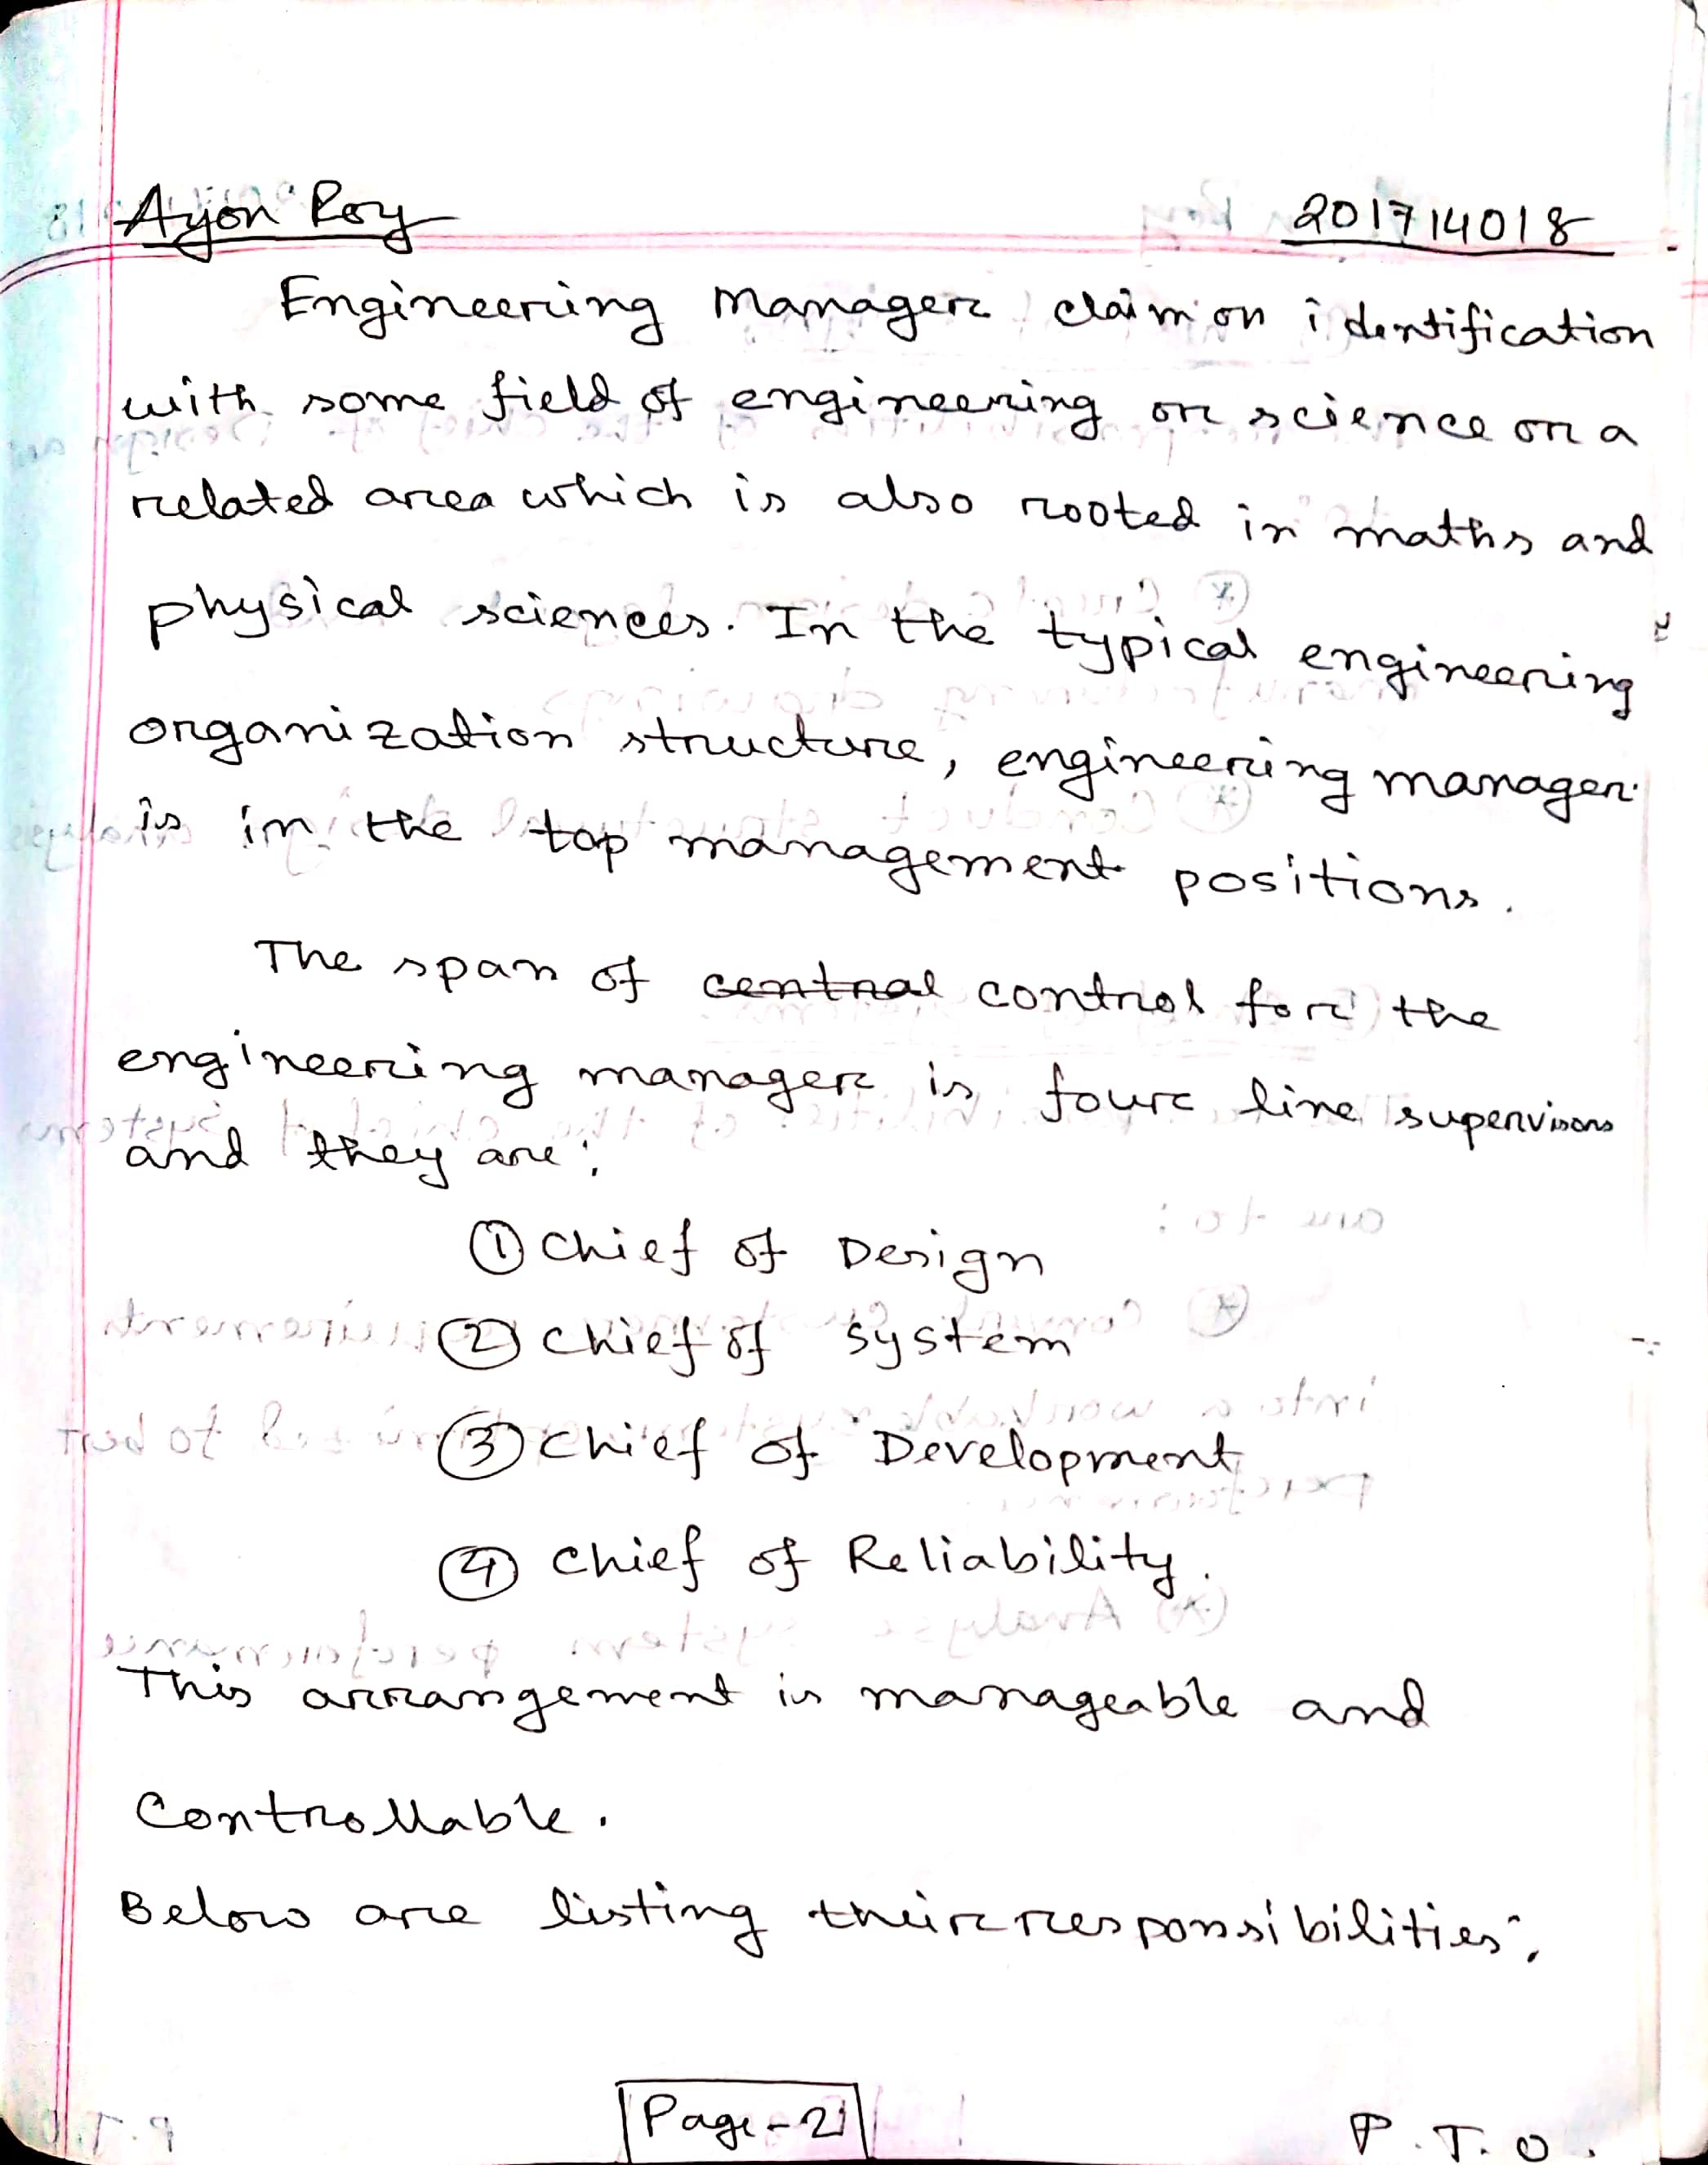 Ayon Roy 201714018
Engineering manager claim on identification
with some field of engineering or science or a
related area which is also rooted in maths and
physical sciences. In the typical engineering
organization structure, engineering manager
is in the top management positions.
The span of central control for the
engineering manager is four line supervisors
and they are:
① Chief of Design
② Chief of system
③ Chief of Development
④ Chief of Reliability.
This arrangement is manageable and
Controllable.
Below are listing their responsibilities:
Page-2
P.T.O.